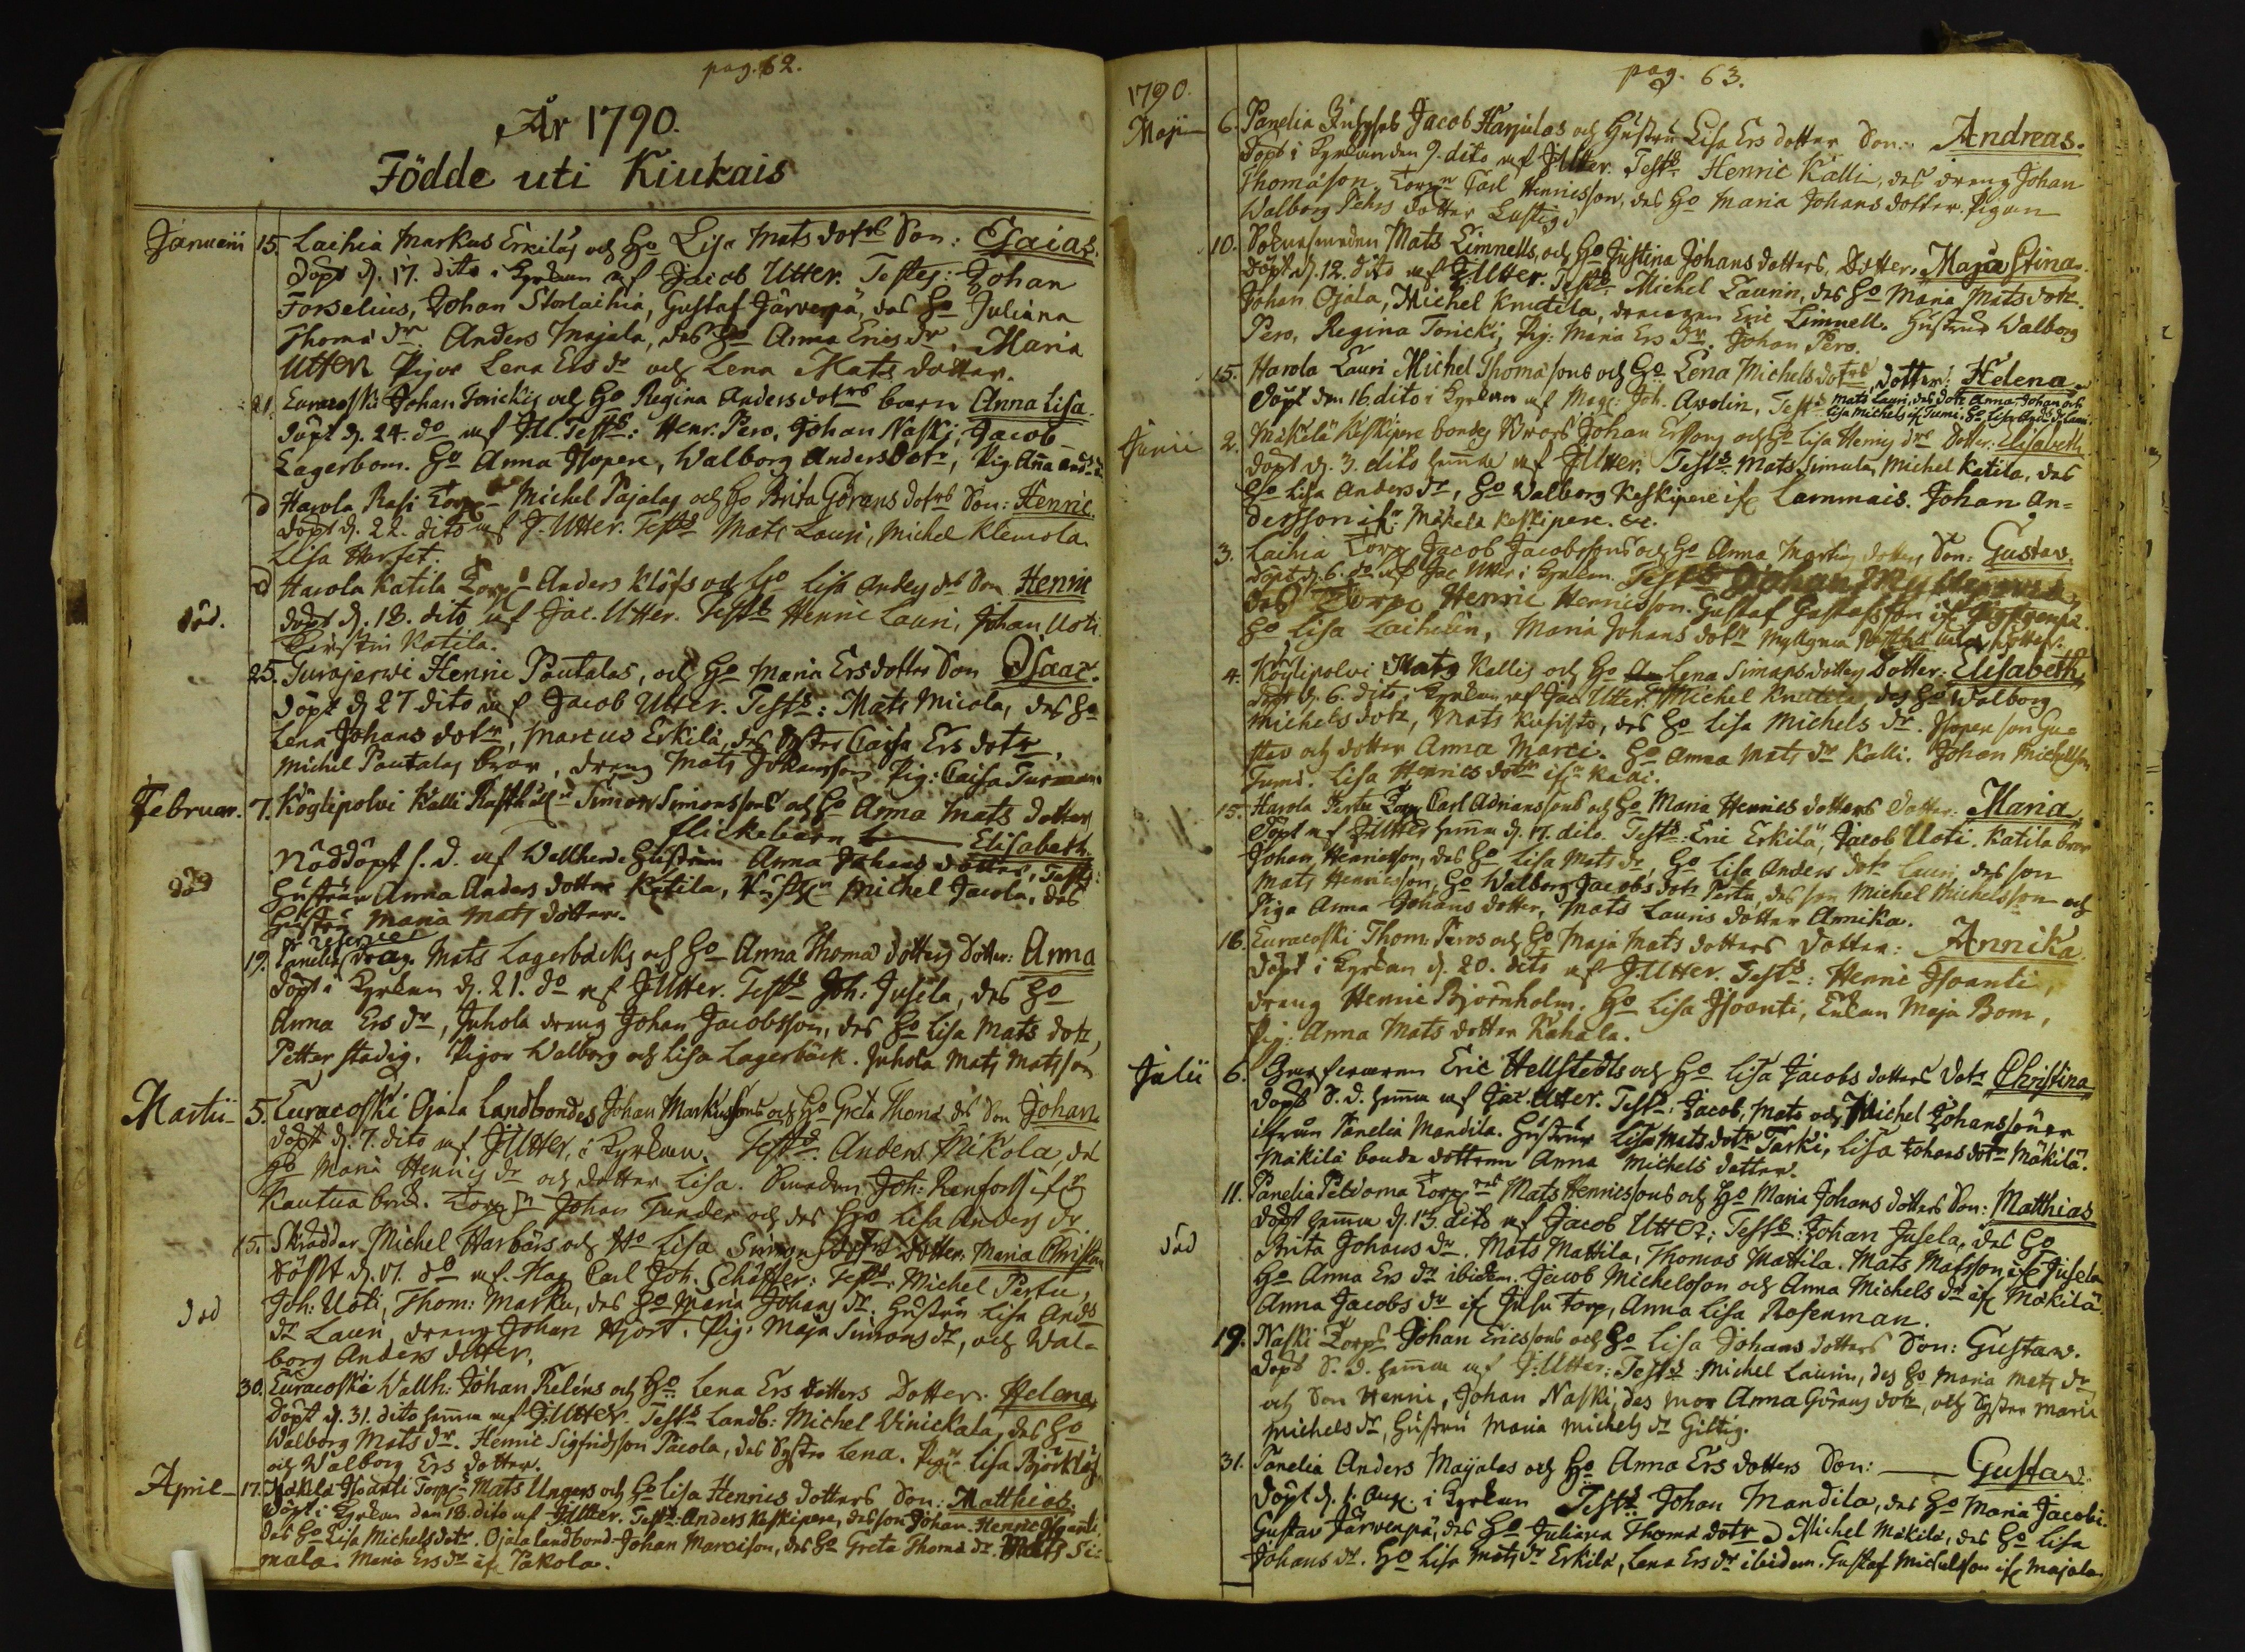 pag. 62.
År 1790.
Födde uti Kiukais
Januarii 15. Laihia Markus Erkiläs och Ho Lisa Mats dotrs Son: Esaias.
döpt d. 17. dito i Kyrkan af Jacob Utter. Testes: Johan
Forselius, Johan Storlaihia, Gustaf Järvenpä, des Ho Juliana
Thomæ dr. Anders Majala, des Ho Anna Erics dr. Maria
Utter Pigor Lena Ers dr och Lena Mats dotter.
21. Euracoski Johan Torickis och Ho Regina Anders dotrs barn Anna Lisa.
döpt d. 24. do af J.U. Tests: Henr. Pero, Johan Naski, Jacob
Lagerbom. Ho Anna Isopere, Walborg Anders dotr, Pig. Anna And:s d:r
D Harola Rasi Torp: Michel Pajalas och Ho Brita Görans dotrs Son: Henric.
döpt d. 22. dito af J. Utter. Tests Mats Lauri, Michel Klemola.
Lisa Harfet.
D Harola Katila Torp: Anders Klöfs och Ho Lisa Anders drs Son Henric
död. döpt d. 18. dito af Jac. Utter. Tests Henric Lauri, Johan Uoti
Kerstin Katila.
25. Turajerwi Henric Pautalas, och Ho Maria Ers dotters Son Isaac.
döpt d. 27 dito af Jacob Utter. Tests: Mats Micola, des Ho
Lena Johans dotr, Marcus Erkilä, des Syster Caisa Ers dotr,
Michel Pautalas bror, dreng Mats Johansson Pig: Caisa
Februar. 7. Köylipolvi Kalli Simon Simonssons och Ho Anna Mats dotters
flickebarn Elisabeth
Nöddöpt s. d. af Hustrun Anna Johans dotter, Tests:
död Hustrun Anna Anders dotter Katila, Michel Jacola, des
Hustru Maria Mats dotter.
19. Panelia reserve drag. Mats Lagerbäcks och Ho Anna Thomæ dotters Dotter: Anna
döpt i Kyrkan d. 21. do af J Utter. Tests Joh: Jusela, des Ho
Anna Ers dr, Juhola dreng Johan Jacobsson, des Ho Lisa Mats dotr,
Petter Stadig. Pigor Walborg och Lisa Lagerbäck. Juhola Mats Matsson
Martii 5. Euracoski Ojala Landbondes Johan Markussons och Ho Greta Thomæ drs Son Johan
döpt d. 7. dito af J Utter, i Kyrkan. Tests. Anders Mikola, des
Ho Maria Henrics dr och dotter Lisa. Smeden Joh: Renfors
Kautua bruk. Torp: Johan Tunder och des Ho Lisa Anders dr.
15. Skräddar Michel Harbärs och Ho Lisa Simons dotrs Dotter: Maria Christina
Döpt d. 17. do af Mag Carl Joh. Schäffer: Tests: Michel Pertu,
död Joh: Uoti, Thom: Marku, des Ho Maria Johans dr. Hustrun Lisa And:s
dr Lauri, dreng Johan Hjort. Pig: Maja Simons dr, och Wal-
borg Anders dotter.
30. Euracoski Wallh: Johan Reléns och Ho: Lena Ers dotters Dotter: Helena
döpt d. 31. dito hemma af J Utter. Tests Landb: Michel Vinickala, des Ho
Walborg Mats dr. Henric Sigfridsson Pacola, des Syster Lena. Pig: Lisa Björklöf
och Walborg Ers dotter.
April 17. Mäkilä Isoanti Torp: Mats Ungers och Ho Lisa Henrics dotters Son: Matthias.
Döpt i Kyrkan den 18. dito af J Utter. Tests: Anders Keskipere, des son Johan. Henric Isoanti,
des Ho Lisa Michels dotr. Ojala landbond. Johan Marcison, des Ho Greta Thomæ dr. Mats Si-
mala. Maria Ers dr if Pakola.
pag. 63.
1790.
Maji 6. Panelia Jacob Harjulas och Hustru Lisa Ers dotter Son: Andreas.
döpt i Kyrkan den 9. dito af J Utter. Tests Henric Kalli, des dreng Johan
Thomason. Torp:n Carl Henricsson, des Ho Maria Johans dotter. Pigan
Walborg Pehrs dotter Lustig.
10. Sokensmeden Mats Limnells, och Ho Justina Johans dotters, Dotter: Maja Stina.
Döpt d. 12. dito af J Utter. Tests: Michel Laurin, des Ho Maria Mats dotr.
Johan Ojala, Michel Knutila, drengen Eric Limnell. Hustrur Walborg
Pero, Regina Toricki, Pig: Maria Ers dr. Johan Pero.
15. Harola Lauri Michel Thomæsons och Ho Lena Michels dotrs, dotter: Helena
döpt den 16. dito i Kyrkan af Mag: Joh. Avolin. Tests Mats Lauri, des dotr Anna. Johan och
Lisa Michels if Tumi. Ho Lisa And:s dr Lauri.
Junii 2. Mäkilä Keskipere bondes Brors Johan Erssons och Ho Lisa Henrics drs Dotter: Elisabeth
Döpt d. 3. dito hemma af J Utter. Tests: Mats Simula, Michel Katila, des
Ho Lisa Anders dr, Ho Walborg Keskipere if Lammais. Johan An-
dersson if: Mäkelä Keskipere. &c.
3. Laihia Torp Jacob Jacobssons och Ho Anna Martins dotters Son: Gustav.
döpt d. 6. do af Jac Utter i Kyrkan. Tests
des Torp: Henric Henricsson. Gustaf Gustafsson if
Ho Lisa Laihian, Maria Johans dotr
4. Köylipolvi Mats Kallis och Ho Lena Simons dotters Dotter: Elisabeth
döpt d. 6. dito, i Kyrkan af Jac Utter. Michel Knutila, des Ho Walborg
Michels dotr, Mats Kusisto, des Ho Lisa Michels dr. Isopere son Gu-
stav och dotter Anna Marci. Ho Anna Mats dr Kalli. Johan Michelsson
Tumi. Lisa Henrics dotr if
15. Harola Pertu Torp Carl Adrianssons och Ho Maria Henrics dotters Dotter: Maria
Döpt af J Utter hemma d. 17. dito. Tests: Eric Erkilä, Jacob Uoti. Katila bror
Johan Henricsson, des Ho Lisa Mats dr, Ho Lisa Anders dotr Lauri, des son
Mats Henricsson, Ho Walborg Jacobs dotr Pertu, des son Michel Michelsson och
Piga Anna Johans dotter, Mats Lauris dotter Annika.
16. Euracoski Thom: Peros och Ho Maja Mats dotters dotter: Annika
döpt i Kyrkan d. 20. dito af J Utter. Tests: Henric Isoanti,
dreng Henric Björnholm. Ho Lisa Isoanti, Enkan Maja Bom,
Pig: Anna Mats dotter Kahala.
Julii 6. Eric Hellstedts och Ho Lisa Jacobs dotters dotr Christina
Döpt S. D. hemma af Jac. Utter. Tests: Jacob, Mats och Michel Johanssöner
ifrån Panelia Mandila. Hustrur Lisa Mats dotr Tarki, Lisa Johans dotr Mäkilä.
Mäkilä bonde dottren Anna Michels dotter.
11. Panelia Peldoma Torp:ns Mats Henricssons och Ho Maria Johans dotters Son: Matthias
död döpt hemma d. 13. dito af Jacob Utter; Tests: Johan Jusela, des Ho
Brita Johans dr. Mats Mattila, Thomas Mattila. Mats Matsson if Jusela
Ho Anna Ers dr ibidem. Jacob Michelsson och Anna Michels dr if Mäkilä.
Anna Jacobs dr if Jusu Torp, Anna Lisa Rosenman.
19. Naski Torps Johan Ericssons och Ho Lisa Johans dotters Son: Gustav.
Döpt S. D. hemma af J: Utter: Tests: Michel Laurin, des Ho Maria Mats dr
och Son Henric, Johan Naski, des mor Anna Görans dotr, och Syster Maria
Michels dr, Hustru Maria Michels dr Giltig.
31. Panelia Anders Maijalas och Ho Anna Ers dotters Son: Gustav.
Döpt d. 1. Aug. i Kyrkan Tests: Johan Mandila, des Ho Maria Jacobi.
Gustav Järvenpä, des Ho Juliana Thomæ dotr. Michel Mäkilä, des Ho Lisa
Johans dr. Ho Lisa Mats dr Erkilä, Lena Ers dr ibidem. Gustaf Michelsson if Majala